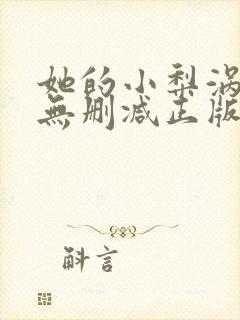 她的小梨涡
無删减正版
斛言